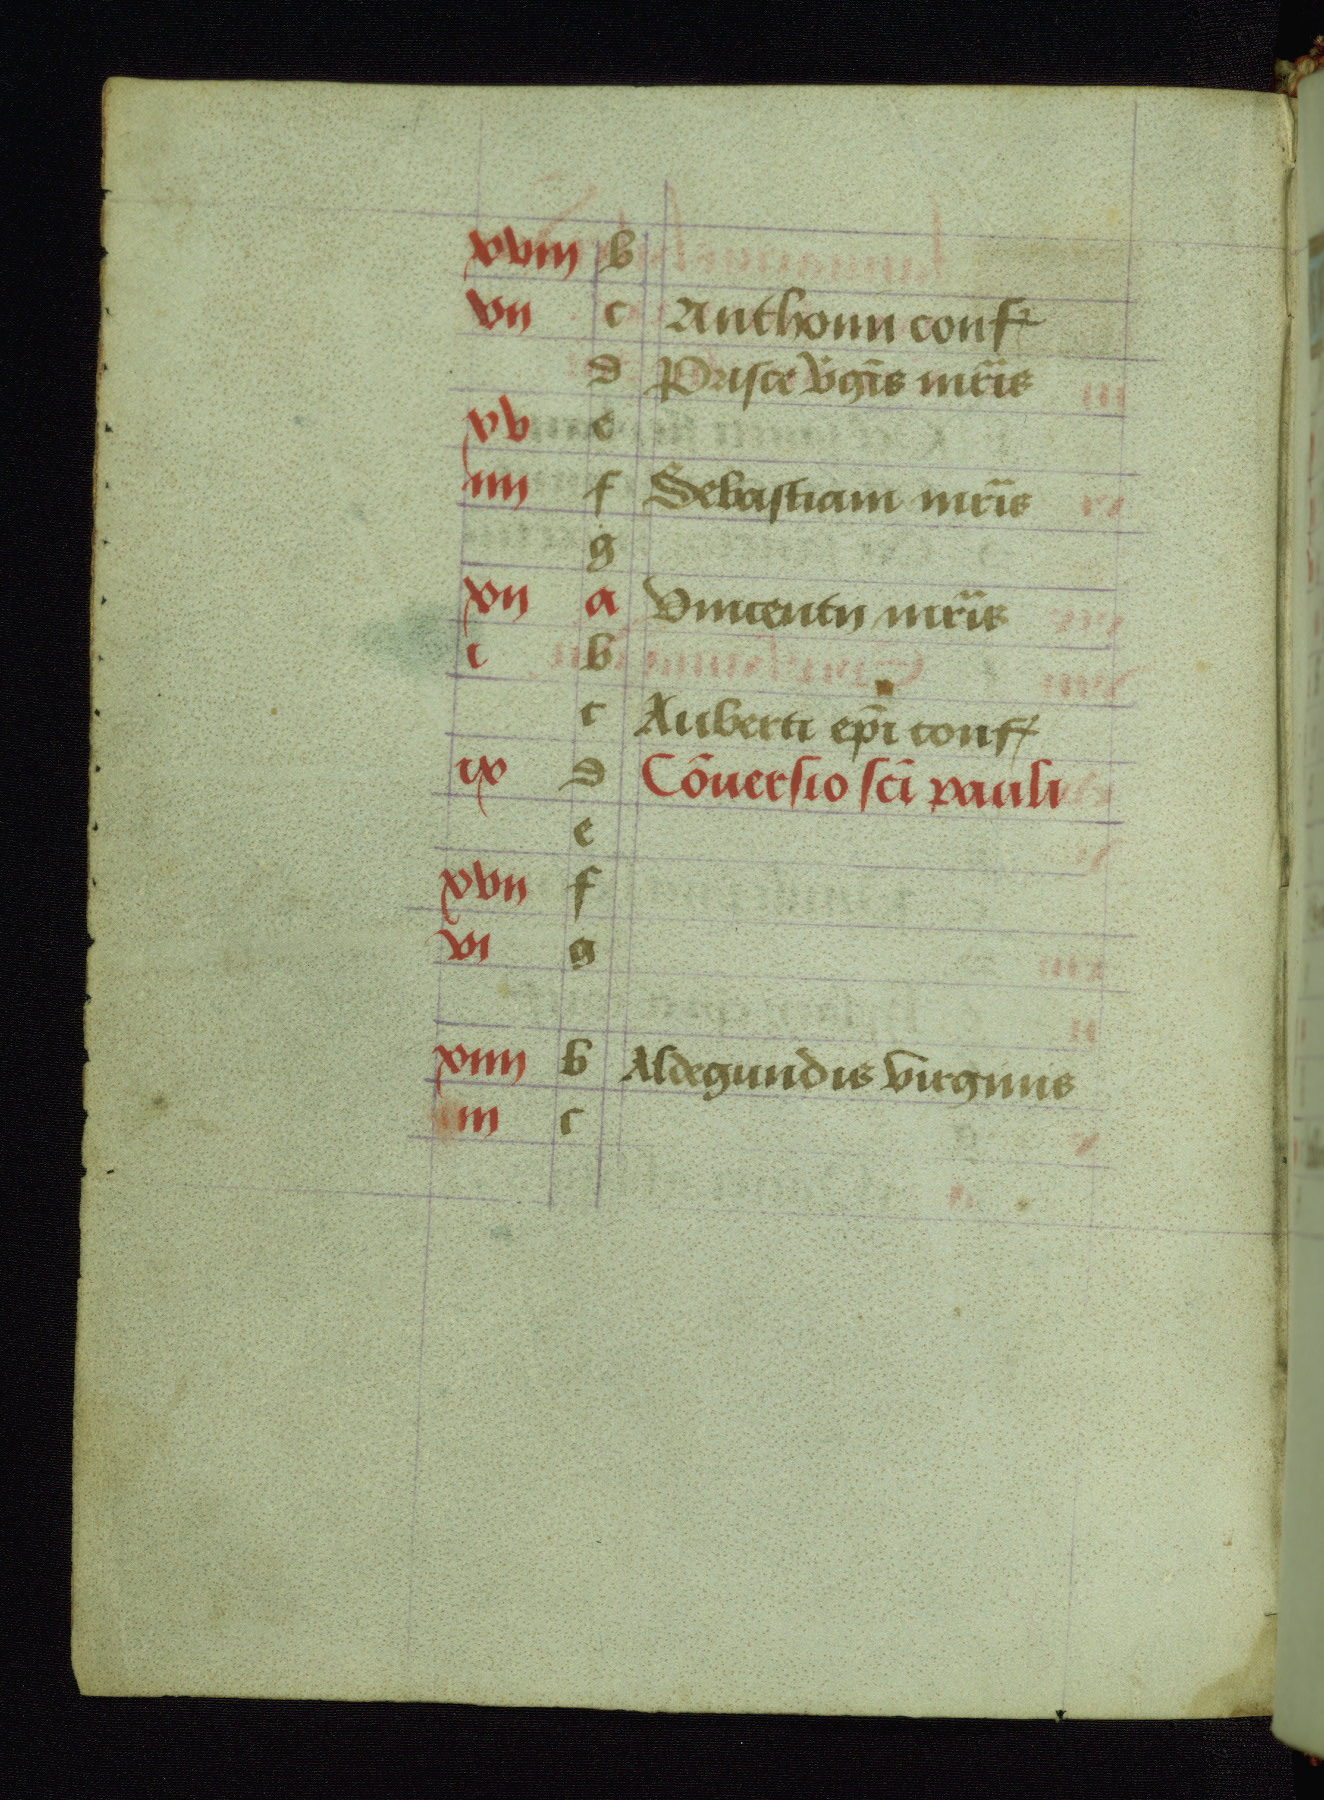 xviii b
vii c Anthonii conf
d Prisce v̇gīs mr̄is
xv e
iiii f Sebastiani mr̄is
g
xii a Vincentii mr̄is
i b
c Auberti ep̄i conf
ix d Cōuersio sc̄i pauli
e
xvii f
vi g
xiiii b Aldegundis virginis
iii c